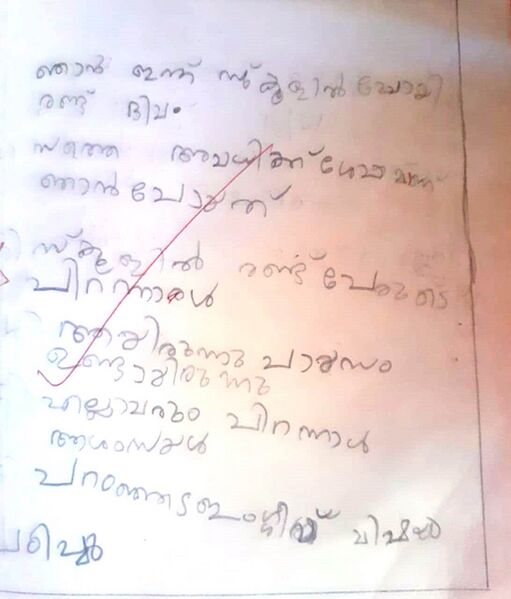 ഞാൻ ഇന്ന് സ്കൂളിൽ പോയി
രണ്ട് ദിവ
സത്തെ അവധിക്ക് ശേഷമാണ്
ഞാൻ പോയത്
സ്കൂളിൽ രണ്ട് പേരുടെ
പിറന്നാൾ
ആയിരുന്നു പായസം
ഉണ്ടായിരുന്നു
എല്ലാവരും പിറന്നാൾ
ആശംസകൾ
പറഞ്ഞു